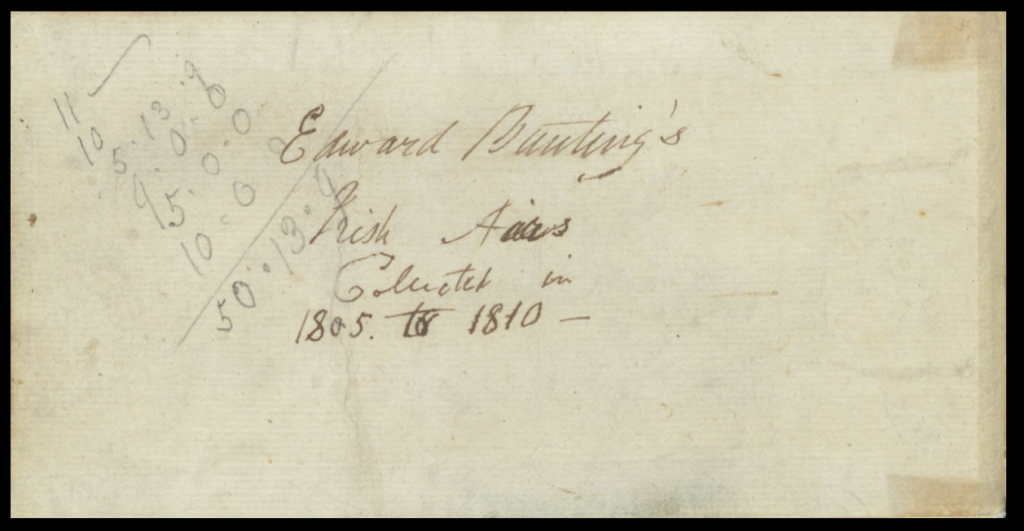 Edward Bunting's
Irish Airs
Collected in
1805. to 1810 –
11
10
5.13.9
9.0.0
15.0.0
10.0
50.13.9